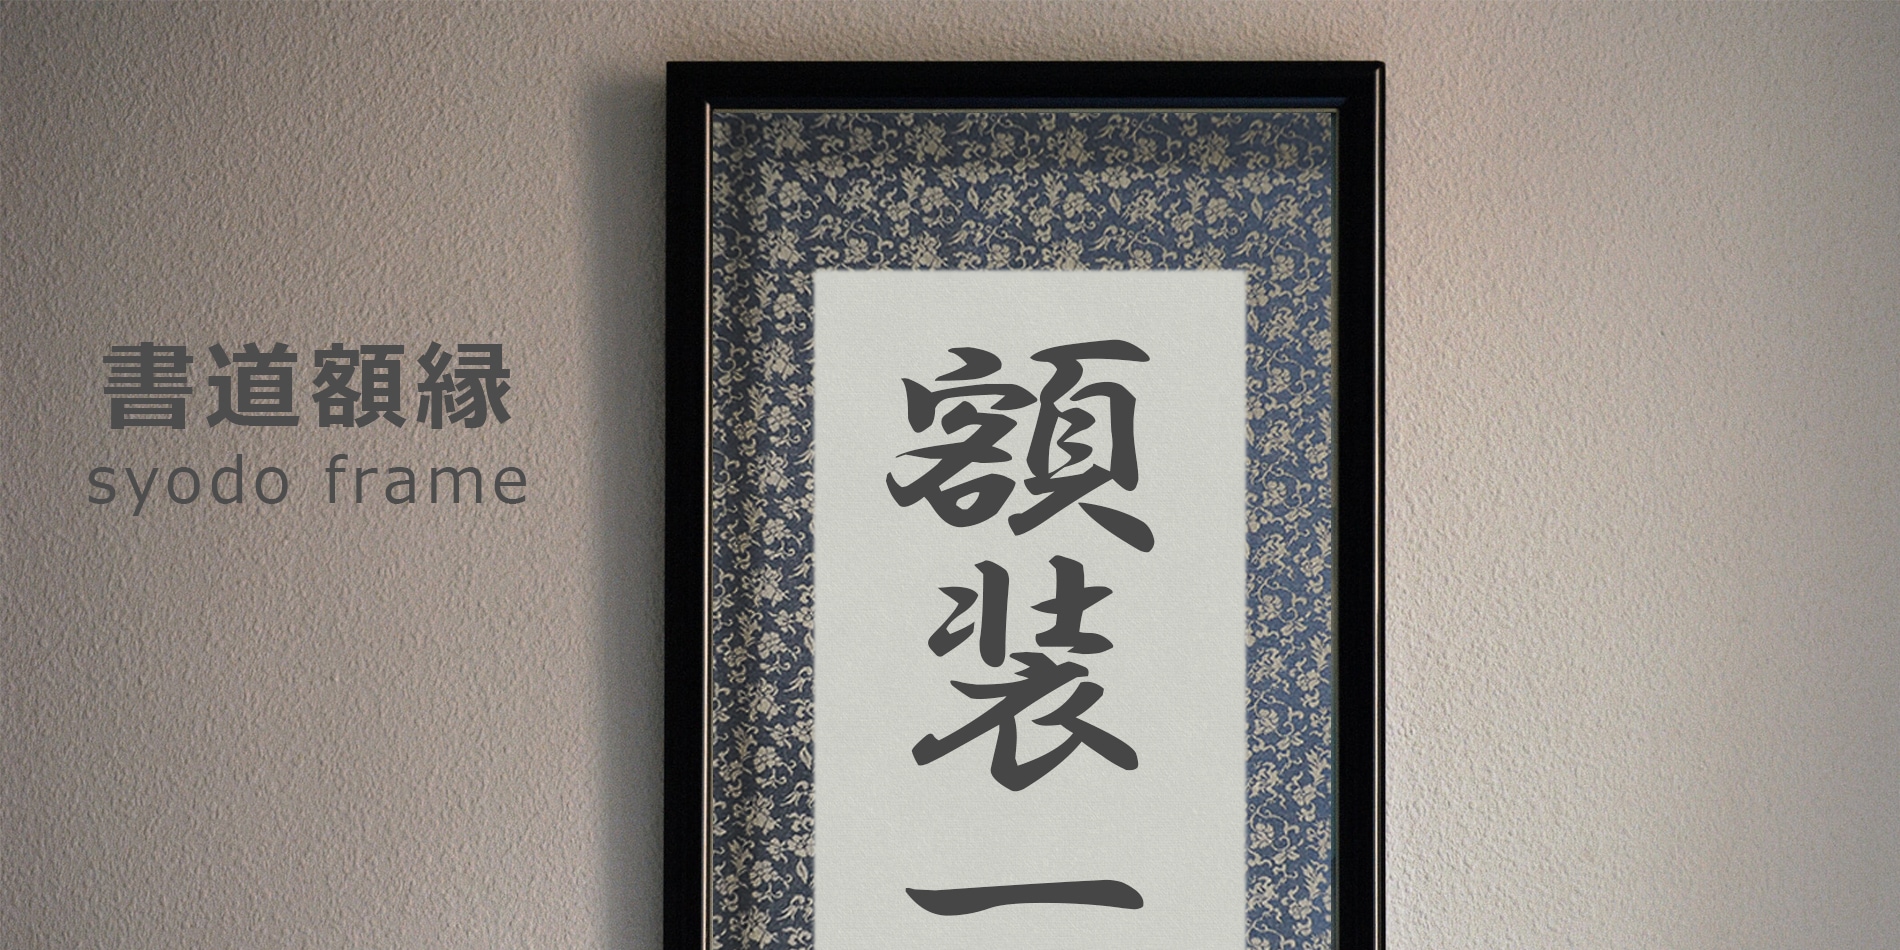 書道額縁
syodo frame
額装一